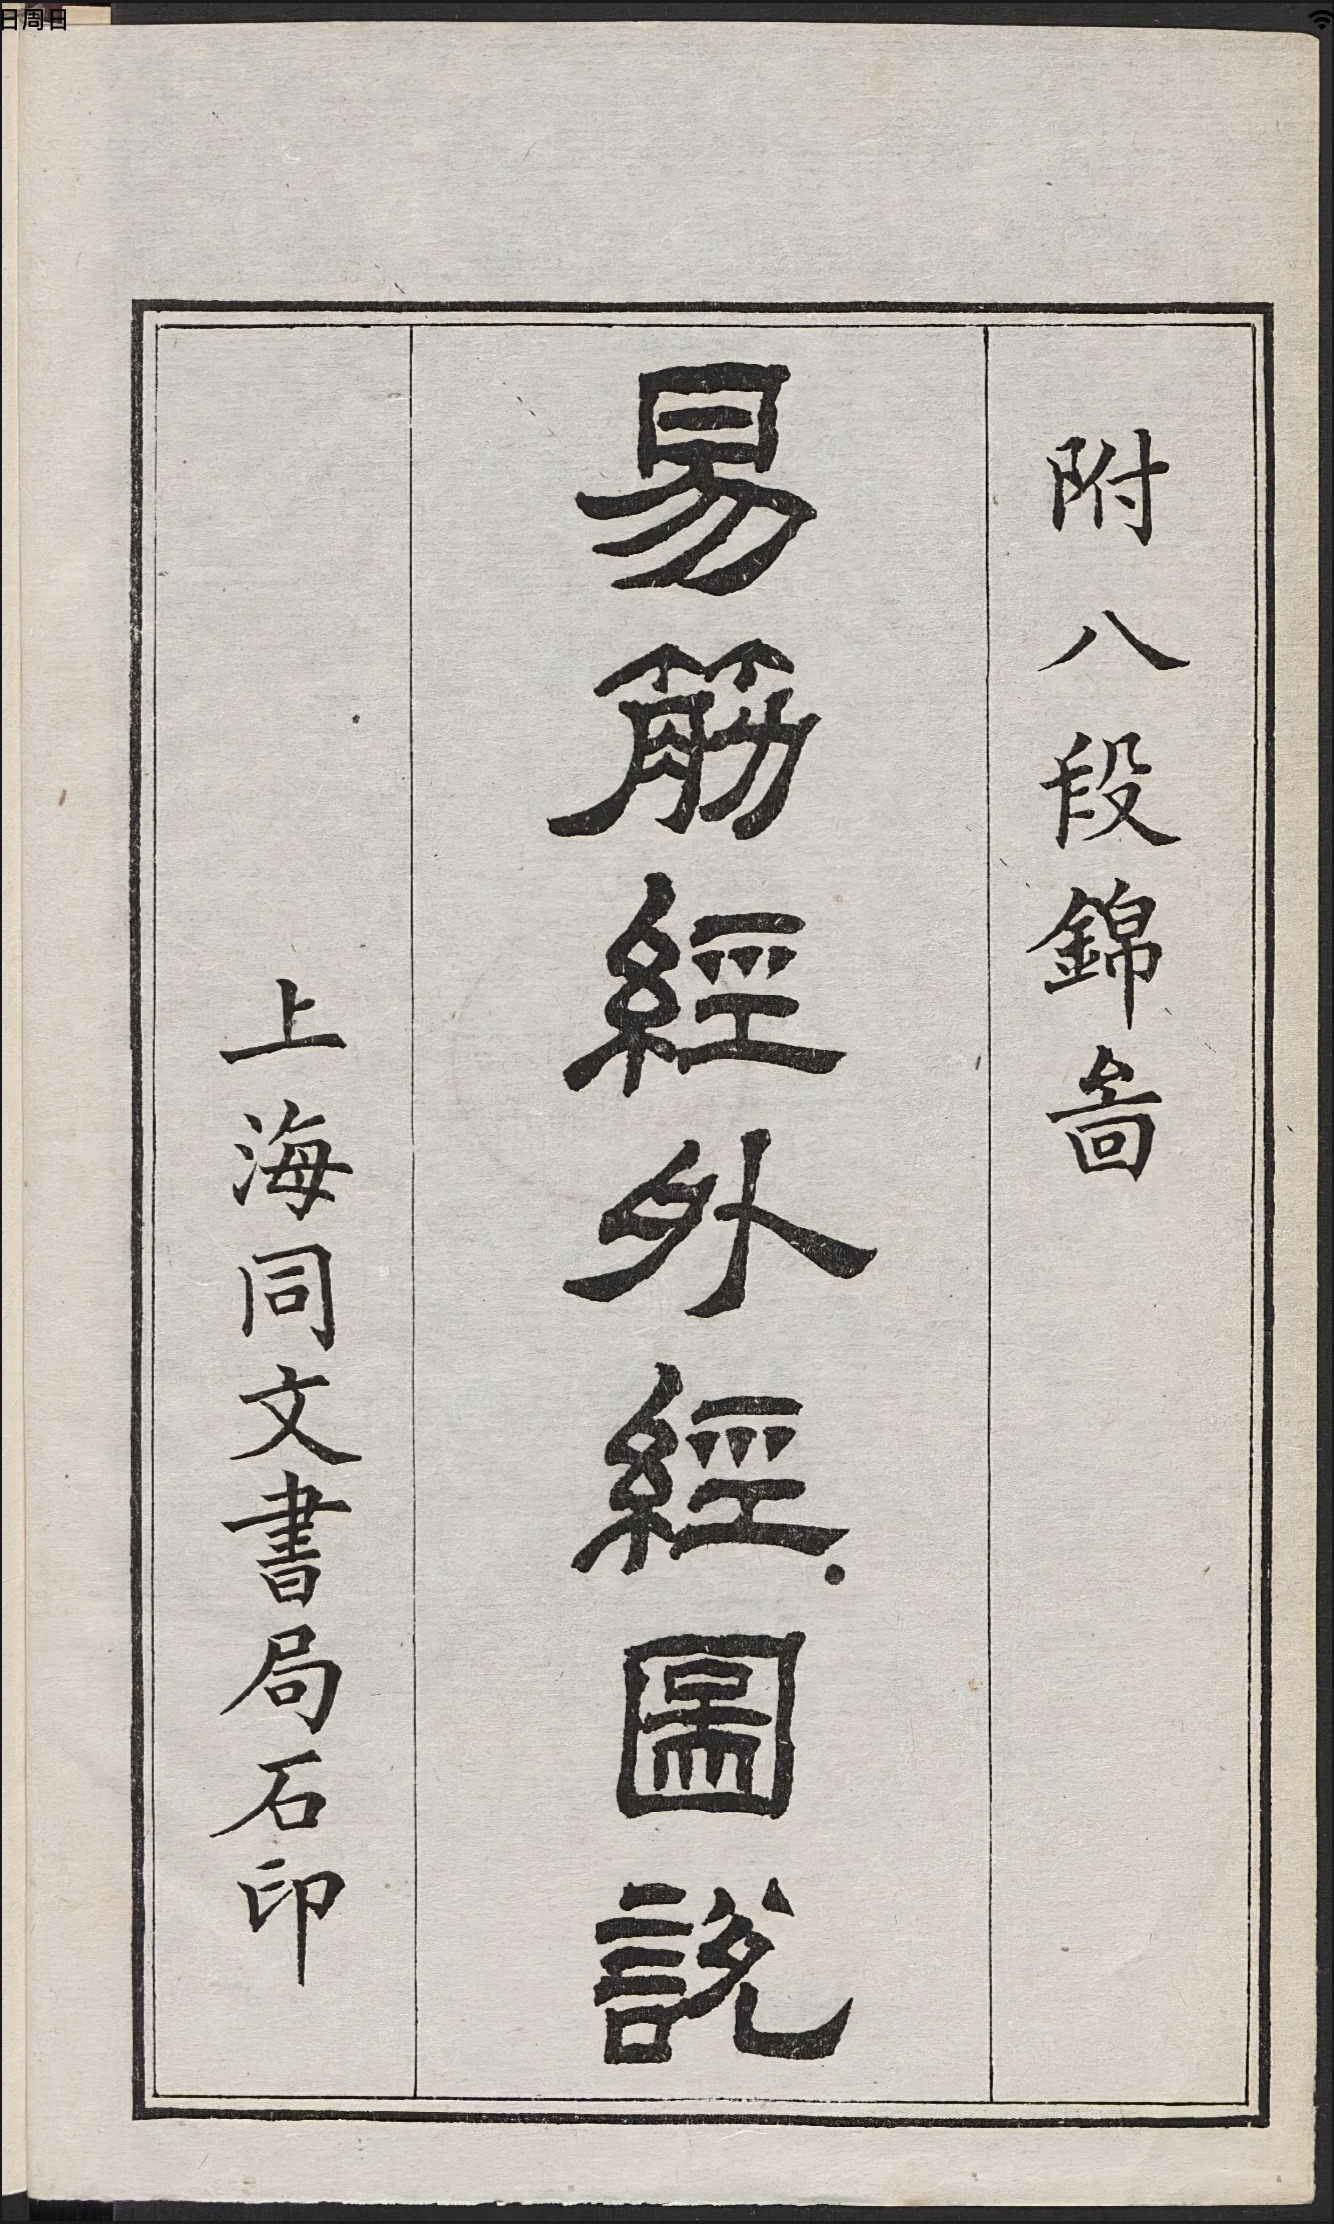 日周日
附八段錦啚
易筋經外經圖說
上海同文書局石印